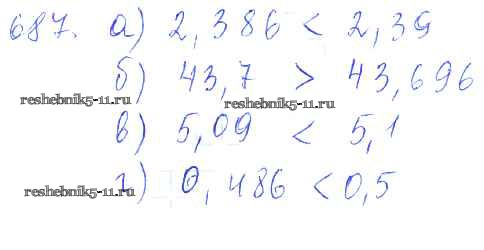 687. а) 2,386 < 2,39
б) 43,7 > 43,696
reshebnik5-11.ru reshebnik5-11.ru
в) 5,09 < 5,1
г) 0,486 < 0,5
reshebnik5-11.ru